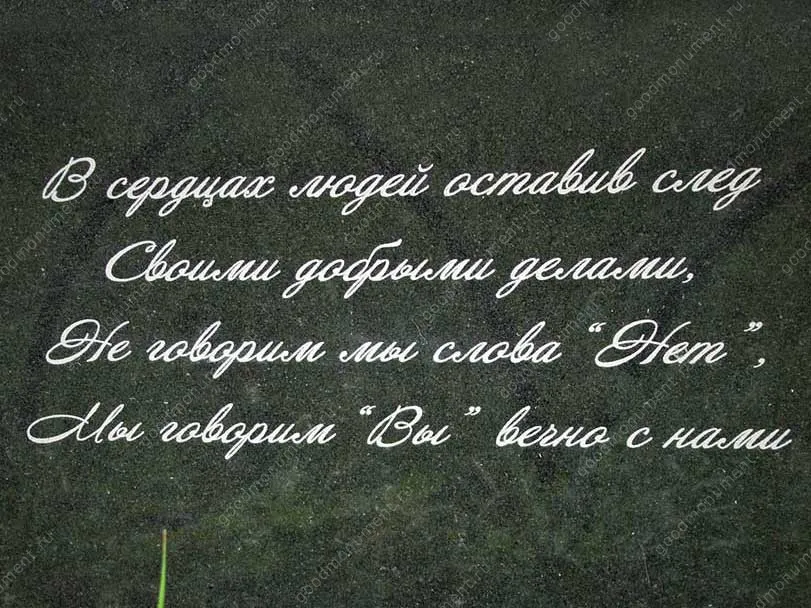 В сердцах людей оставив след
Своими добрыми делами,
Не говорим мы слова “Нет”,
Мы говорим “Вы” вечно с нами
goodmonument.ru